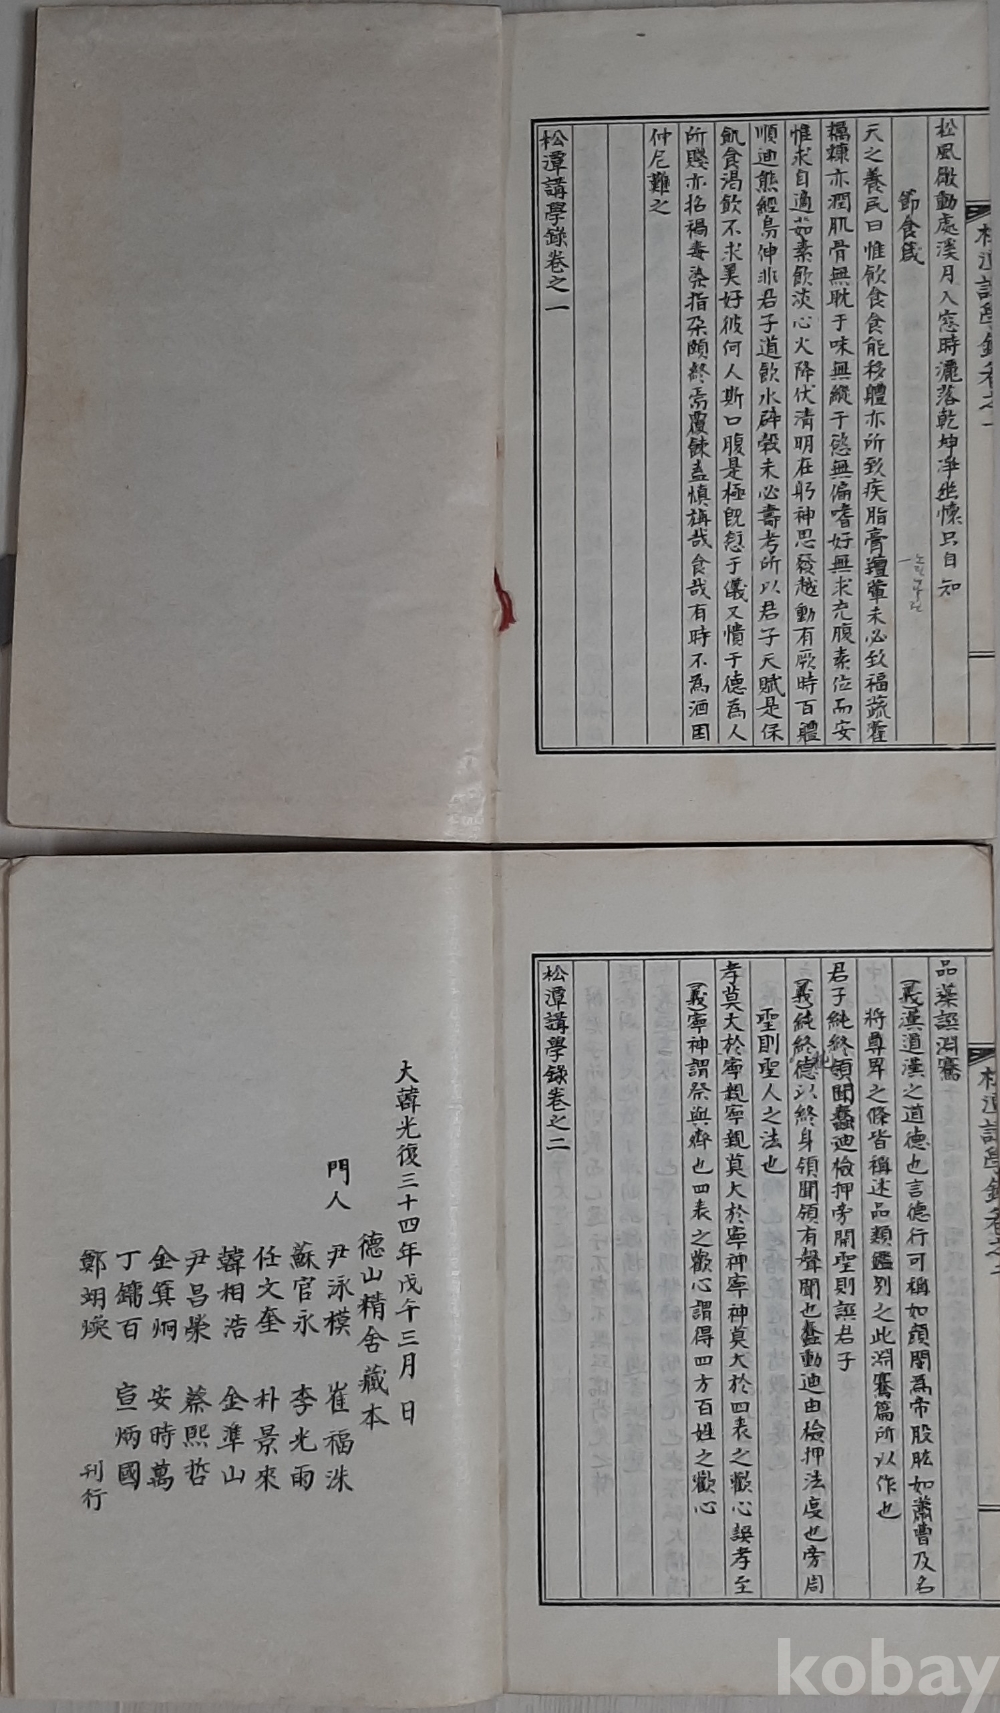 松潭講學錄卷之一
松風微動處溪月入窓時灑落乾坤淨幽懷只自知
節食箴
天之養民曰惟飮食食能移體亦所致疾脂膏羶葷未必致福蔬藿
糲糠亦潤肌骨無耽于味無縱于慾無偏嗜好無求充腹素位而安
惟求自適茹素飮淡心火降伏淸明在躬神思發越動有厥時百體
順迪熊經鳥伸非君子道飮水辟穀未必壽考所以君子天賦是保
飢食渴飮不求美好彼何人斯口腹是極旣愆于儀又憒于德爲人
所賤亦招禍毒染指朶頤終焉覆餗盍愼旃哉食哉有時不爲酒困
仲尼難之
松潭講學錄卷之一
松潭講學錄卷之二
品藻譔淵騫
(義)漢道漢之道德也言德行可稱如顔閔爲帝股肱如蕭曹及名
將尊卑之條皆稱述品類鑑別之此淵騫篇所以作也
君子純終領聞蠢迪檢押旁開聖則譔君子
(義)純終德以終身領聞領有聲聞也蠢動迪由檢押法度也旁周
聖則聖人之法也
孝莫大於寧親寧親莫大於寧神寧神莫大於四表之歡心譔孝至
(義)寧神謂祭與齊也四表之歡心謂得四方百姓之歡心
松潭講學錄卷之二
大韓光復三十四年戊午三月 日
德山精舍藏本
門人 尹泳模 崔福洙
蘇官永 李光雨
任文奎 朴景來
韓相浩 金準山
尹昌榮 蔡熙哲
金箕炯 安時萬
丁鏞百 宣炳國
鄭翊煥 刊行
kobay